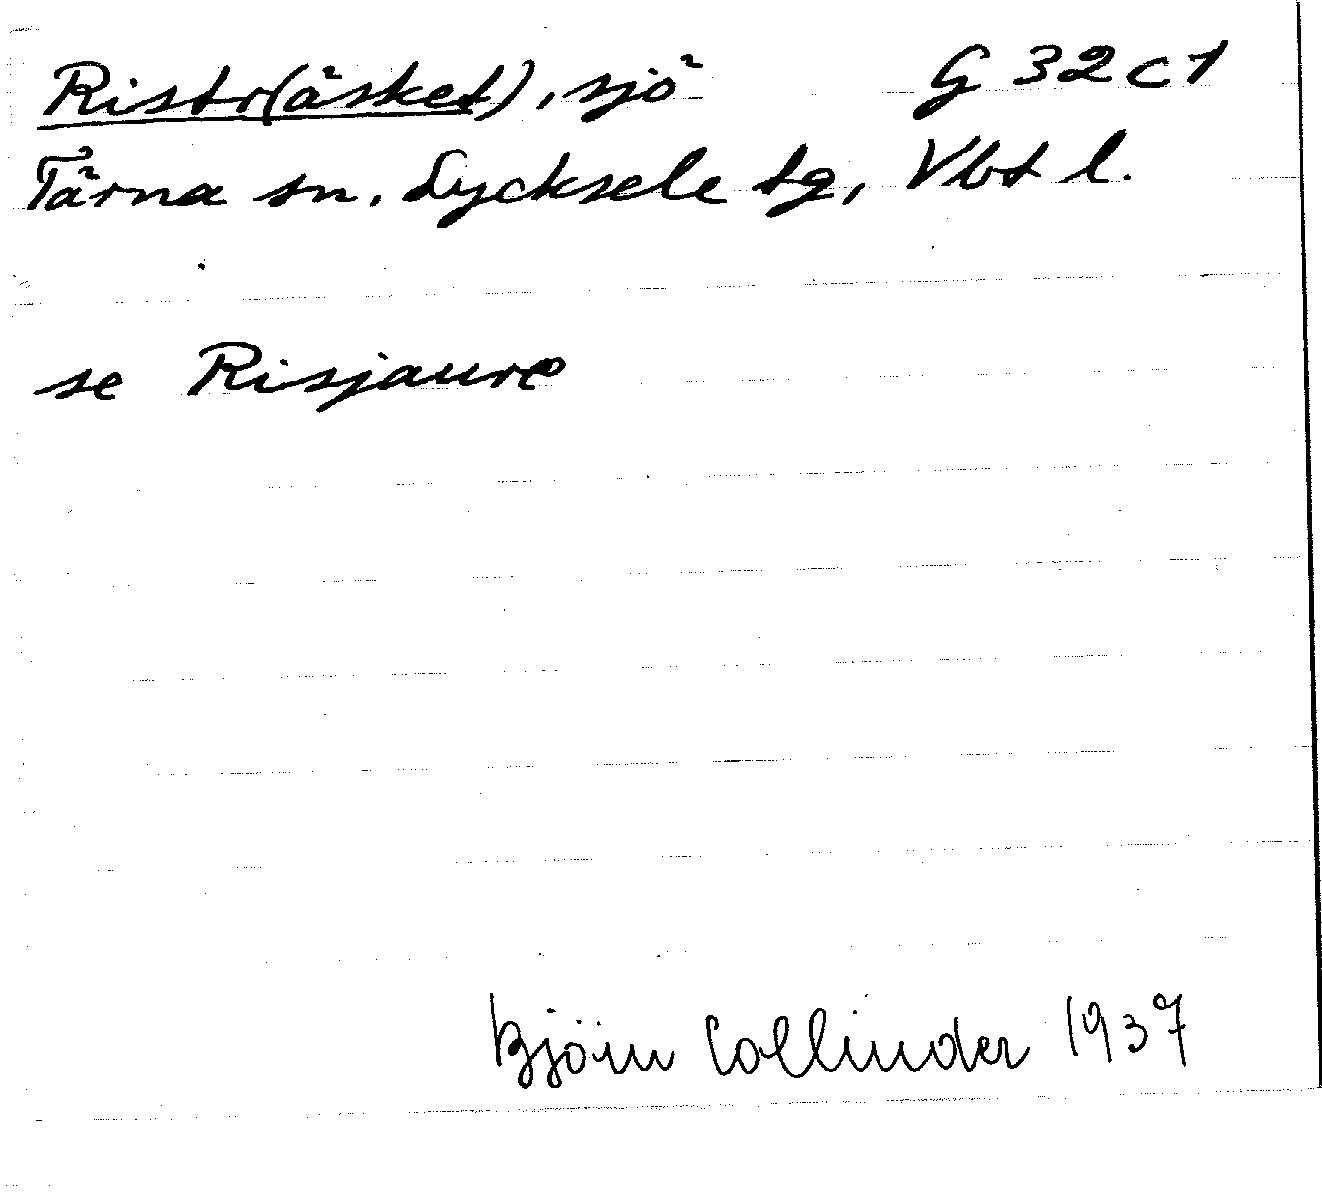 Ristr(äsket), sjö G 32 c 1
Tärna sn. Lycksele tg, Vbt l.
se Risjaure
Björn Collinder 1937